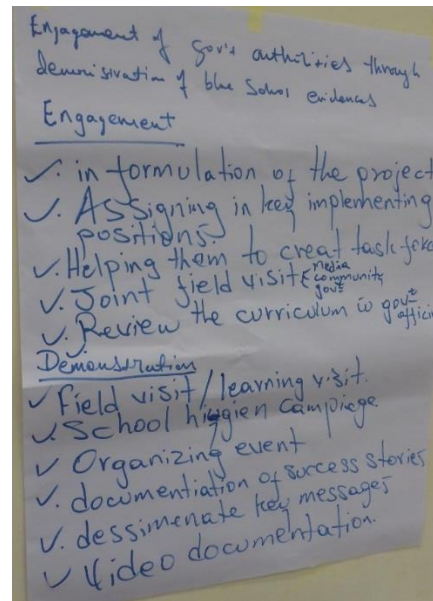 Engagement of gov't authilities through
demonisivation of blue School evidences
Engagement
✓. in formulation of the project
✓. Assigning in key implementing
positions.
✓. Helping them to creat task force
✓. Joint field visit { media
community
gov't
✓. Review the curriculum w gov't
officia
Demonstration
✓ Field visit / learning visit.
✓. School higgien Campiege
✓ Organizing event
✓. documentiation of success stories
✓. dessimenate key messages
✓ Video documentation.